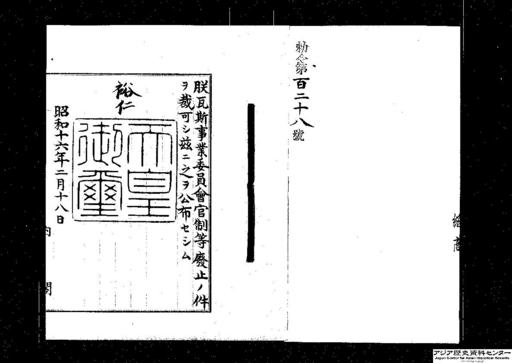 勅令第百二十八號
朕瓦斯事業委員會官制等廢止ノ件
ヲ裁可シ茲ニ之ヲ公布セシム
裕仁
天皇
御璽
昭和十六年二月十八日
内閣
アジア歴史資料センター
Japan Center for Asian Historical Records